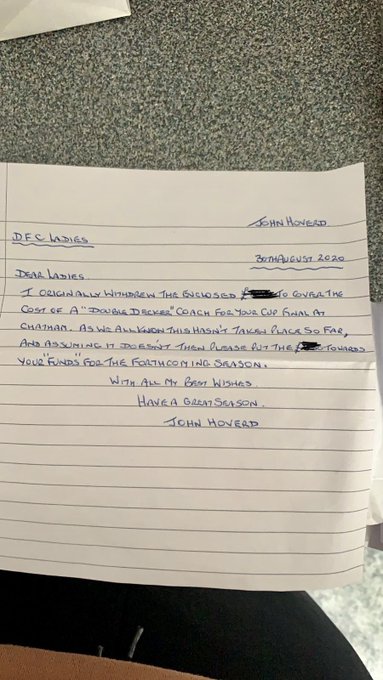 JOHN HOVERD
D.F.C LADIES
30TH AUGUST 2020
DEAR LADIES.
I ORIGINALLY WITHDREW THE ENCLOSED £ TO COVER THE
COST OF A "DOUBLE DECKER" COACH FOR YOUR CUP FINAL AT
CHATHAM. AS WE ALL KNOW THIS HASN'T TAKEN PLACE SO FAR,
AND ASSUMING IT DOESN'T THEN PLEASE PUT THE £ TOWARDS
YOUR "FUNDS" FOR THE FORTHCOMING SEASON.
WITH ALL MY BEST WISHES.
HAVE A GREAT SEASON.
JOHN HOVERD